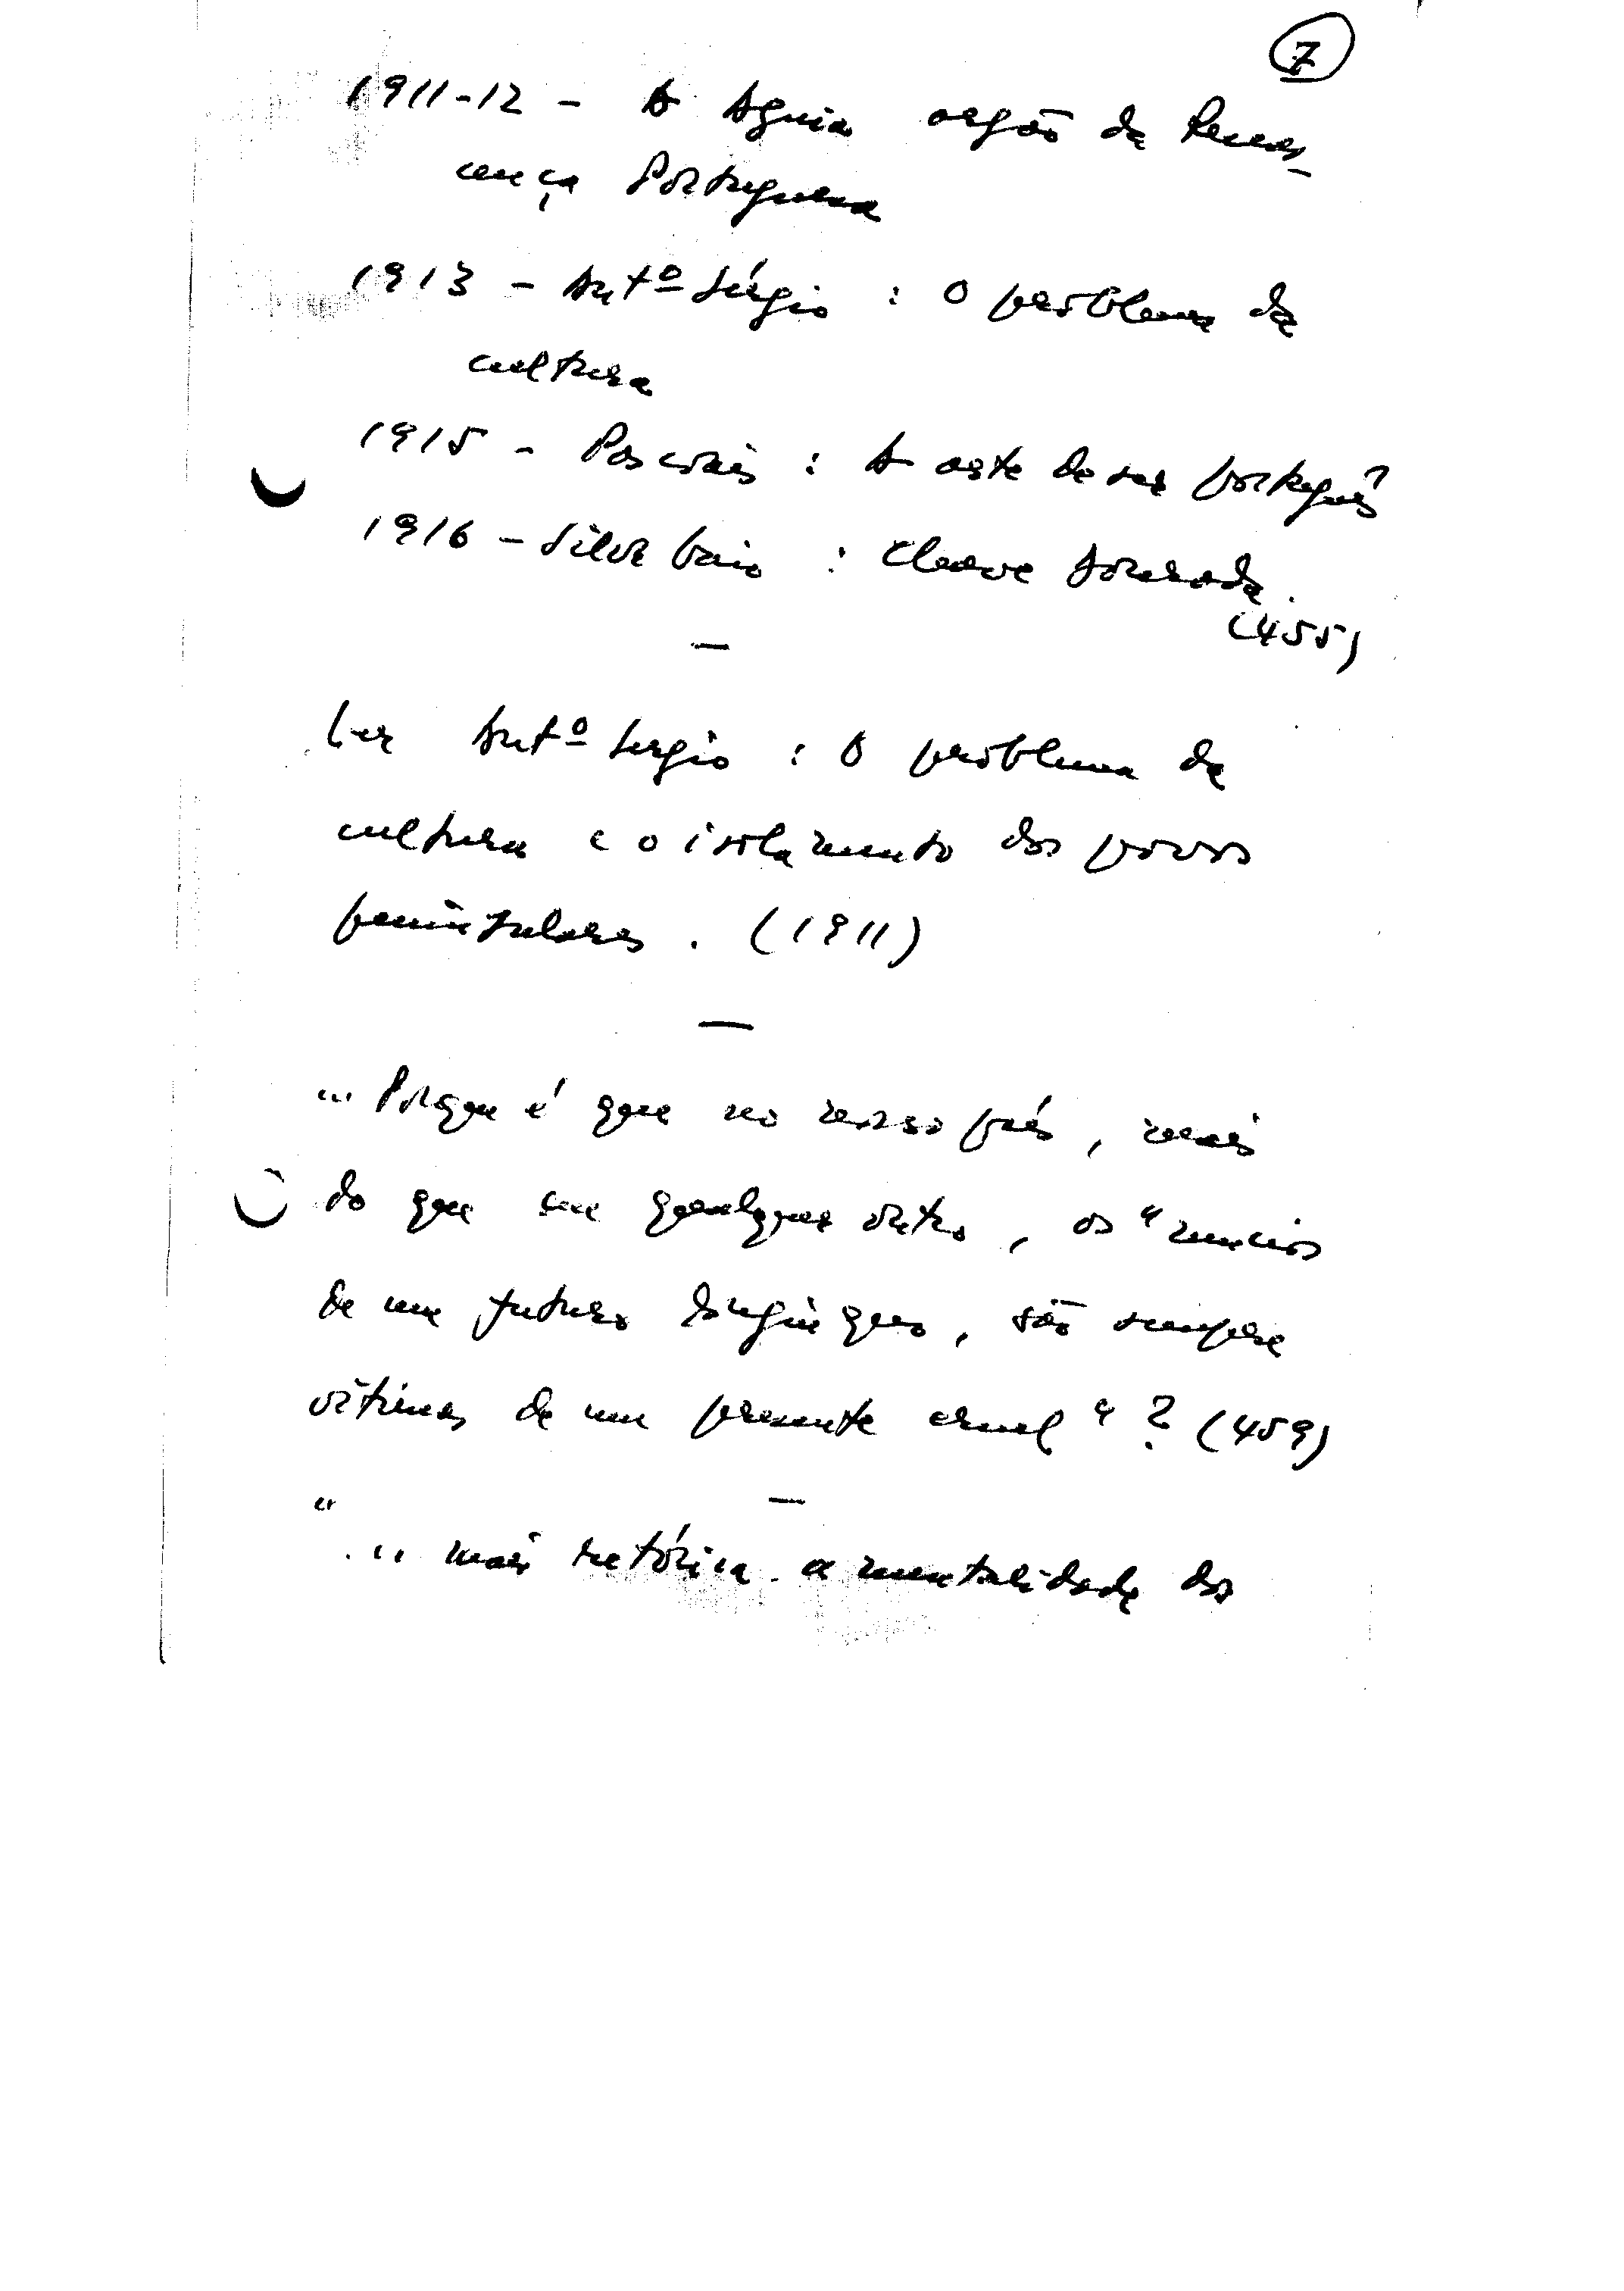 7
1911-12 - A Aguia orgão da Renas-
cença Portuguesa
1913 - Antº Sérgio : O problema da
cultura
1915 - Pascoais : A arte de ser português
1916 - Silva Gaio : Chave Dourada.
(455)
—
Ler Antº Sergio : O problema da
cultura e o isolamento dos povos
peninsulares. (1911)
—
... Porque é que no nosso país, mais
do que em qualquer outro, os "
de um futuro longínquo, são sempre
vítimas de um presente cruel" ? (459)
—
"... mais retórica a mentalidade dos